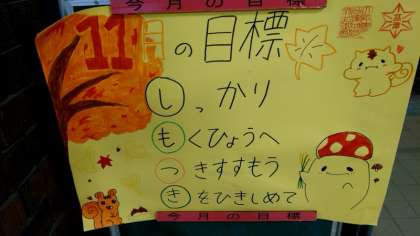 今月の目標
11月の目標
しっかり
もくひょうへ
つきすすもう
きをひきしめて
今月の目標